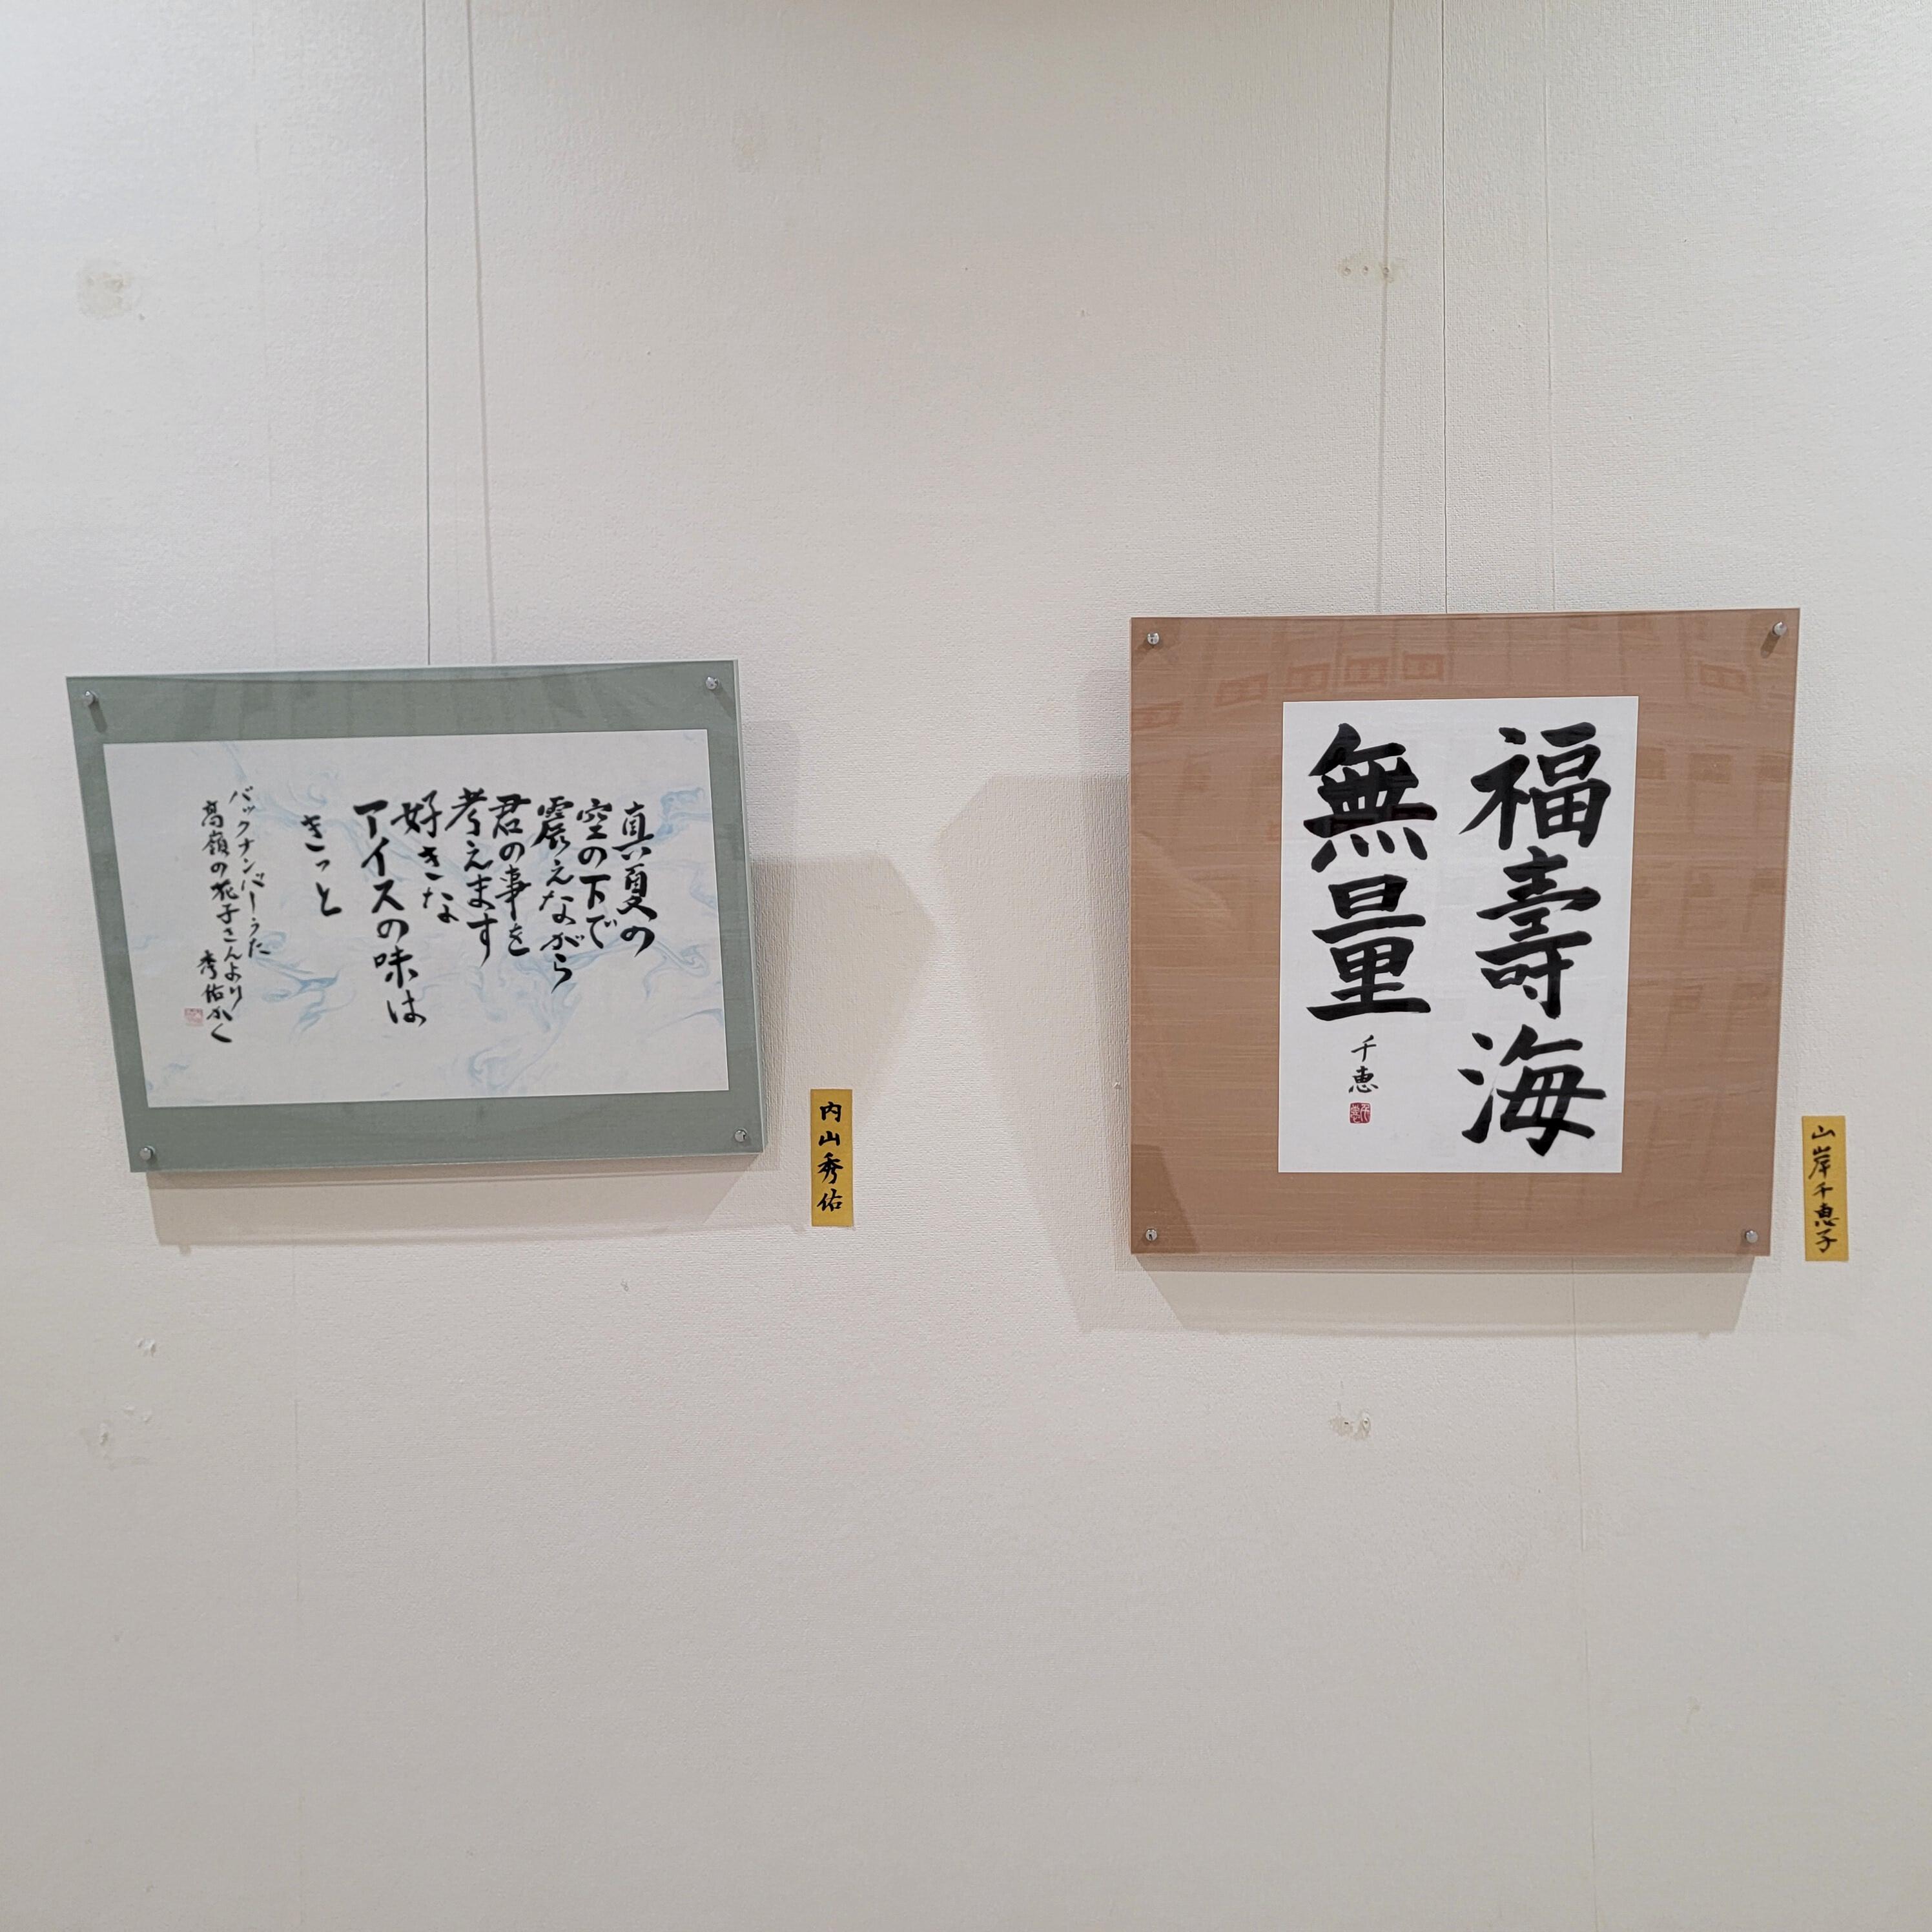 福壽海
無量
千恵
山岸千恵子
真夏の
空の下で
震えながら
君の事を
考えます
好きな
アイスの味は
きっと
バックナンバーうた
高嶺の花子さんより
秀佑かく
内山秀佑